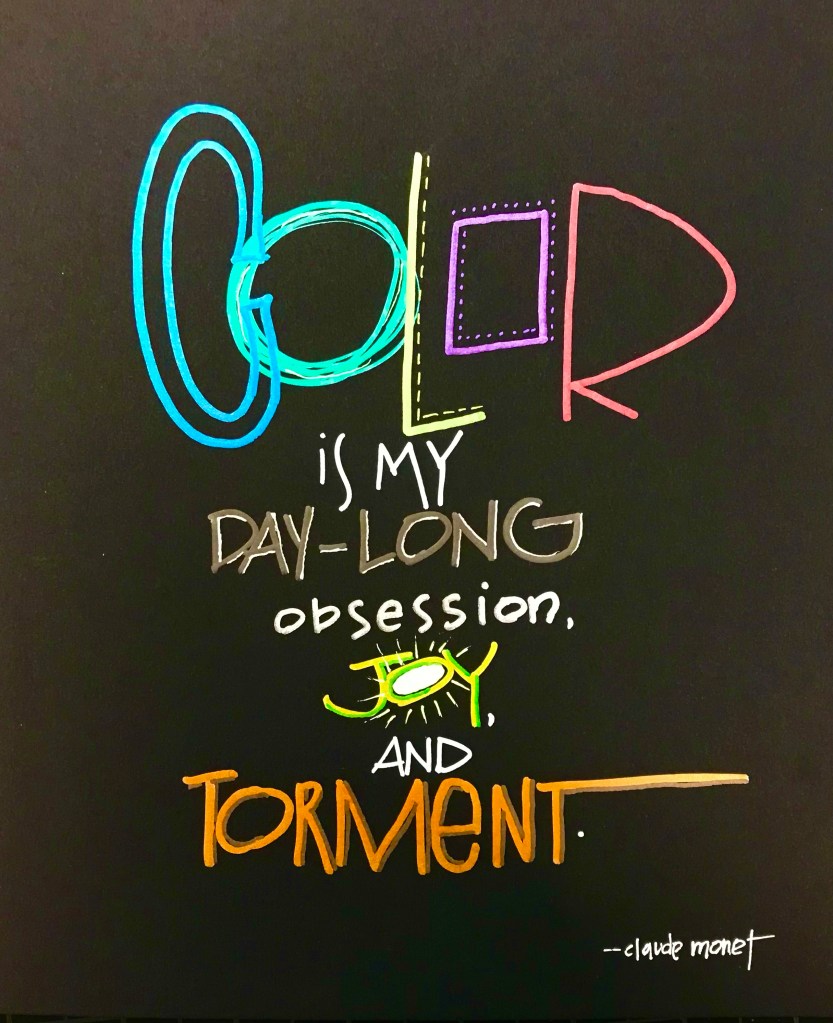 COLOR
is MY
DAY-LONG
obsession,
JOY,
AND
TORMeNT.
--claude monet